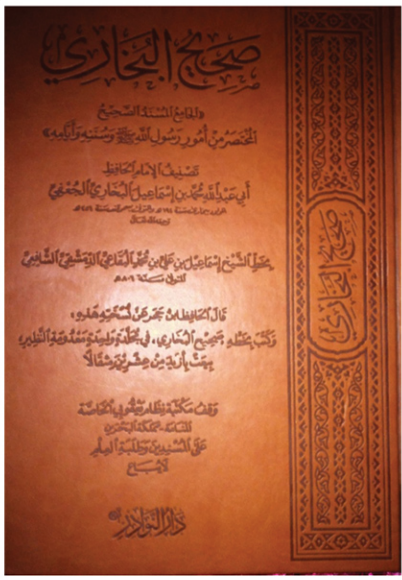 صحيح البخاري
«الجامع المسند الصحيح
المختصر من أمور رسول الله ﷺ وسننه وأيامه»
تصنيف الإمام الحافظ
أبي عبد الله محمد بن إسماعيل البخاري الجعفي
بخط الشيخ إسماعيل بن علي بن محمد البقاعي الدمشقي الشافعي
المتوفى سنة ٨٠٦هـ
قال الحافظ ابن حجر عن نسخته هذه:
وكتب بخطه صحيح البخاري، في مجلدة واحدة معدومة النظير،
بيعت بأزيد من عشرين مثقالا
وقف مكتبة نظام يعقوبي الخاصة
المنامة - مملكة البحرين
على المسندين وطلبة العلم
لا يباع
دار النوادر
صحيح البخاري